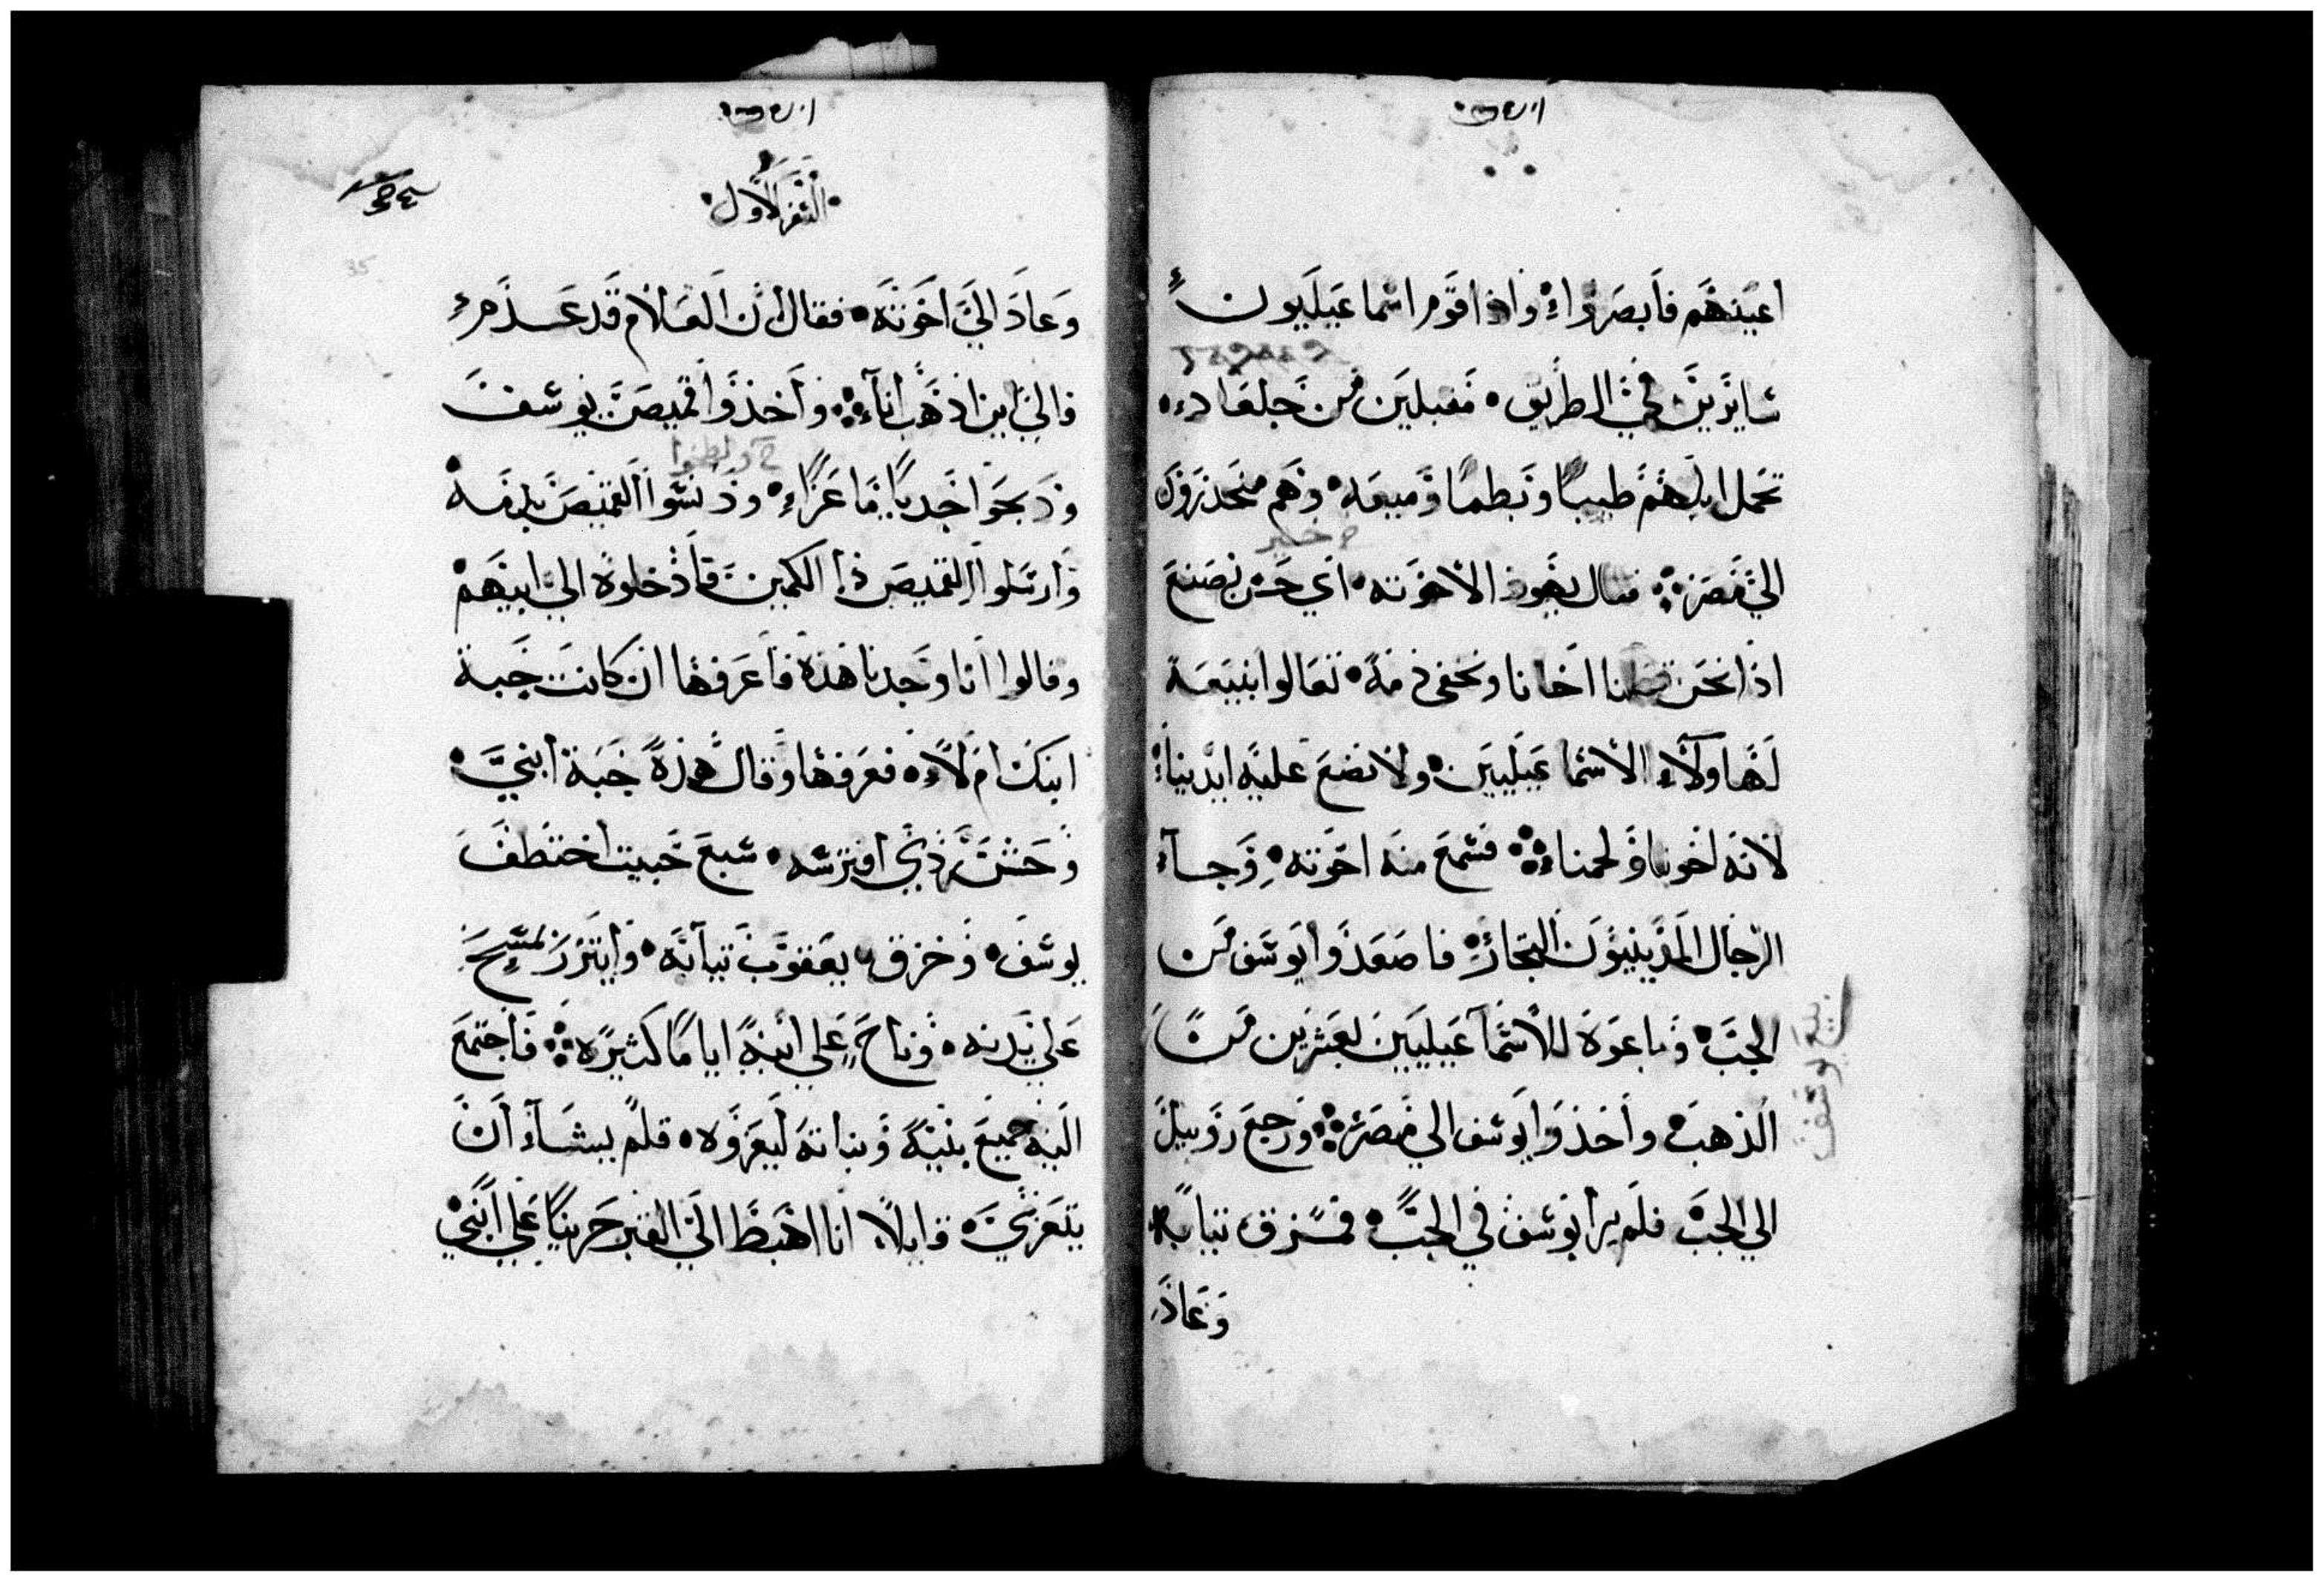 اعينهم فابصروا واذا قوم اسماعيليون
سايرين في الطريق مقبلين من جلعاد
تحمل ابلهم طيبا وبطما وميعه وهم منحدرون
الي مصر فقال يهوذا لاخوته اي خير نصنع
اذا نحن قتلنا اخانا ونخفي دمه تعالوا نبيعه
لهاولاء الاسماعيليين ولا نضع عليه ايدينا
لانه اخونا ولحمنا فسمع منه اخوته وجآء
الرجال المدينيون التجار فاصعدوا يوسف من
الجب وباعوه للاسماعيليين بعشرين منًا
الذهب واخذوا يوسف الي مصر ورجع روبيل
الي الجب فلم يرا يوسف في الجب فمزق تيابه
وعاد
بيع يوسف
السفر الاول
وعاد الي اخوته فقال ان الغلام قد عدم
فالي اين اذهب انا واخذوا قميص يوسف
وذبحوا جديا ماعزا ودنسوا القميص بدمه
ولطخوا
وارسلوا القميص ذا الكمين فادخلوه الي ابيهم
وقالوا انا وجدنا هذه فاعرفها ان كانت جبة
ابنك ام لا فعرفها وقال هذه جبة ابني
وحش ردي افترسه سبع خبيت اختطف
يوسف وخرق يعقوب تيابه وايتزر بمسح
علي بدنه وناح علي ابنه اياما كثيره فاجتمع
اليه جميع بنيه وبناته ليعزوه فلم يشآء ان
يتعزي قايلا انا اهبط الي القبر حزينا علي ابني